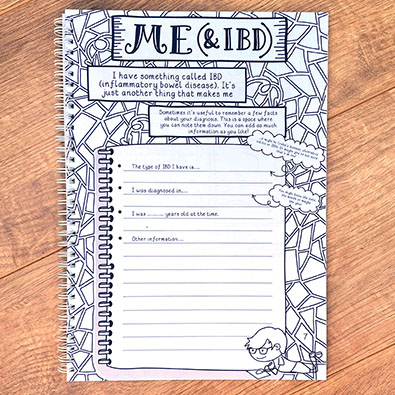 ME (& IBD)
I have something called IBD
(inflammatory bowel disease). It's
just another thing that makes me
Sometimes it's useful to remember a few facts
about your diagnosis. This is a space where
you can note them down. You can add as much
information as you like!
The type of IBD I have is....
I was diagnosed in....
I was ........... years old at the time.
Other information....
7